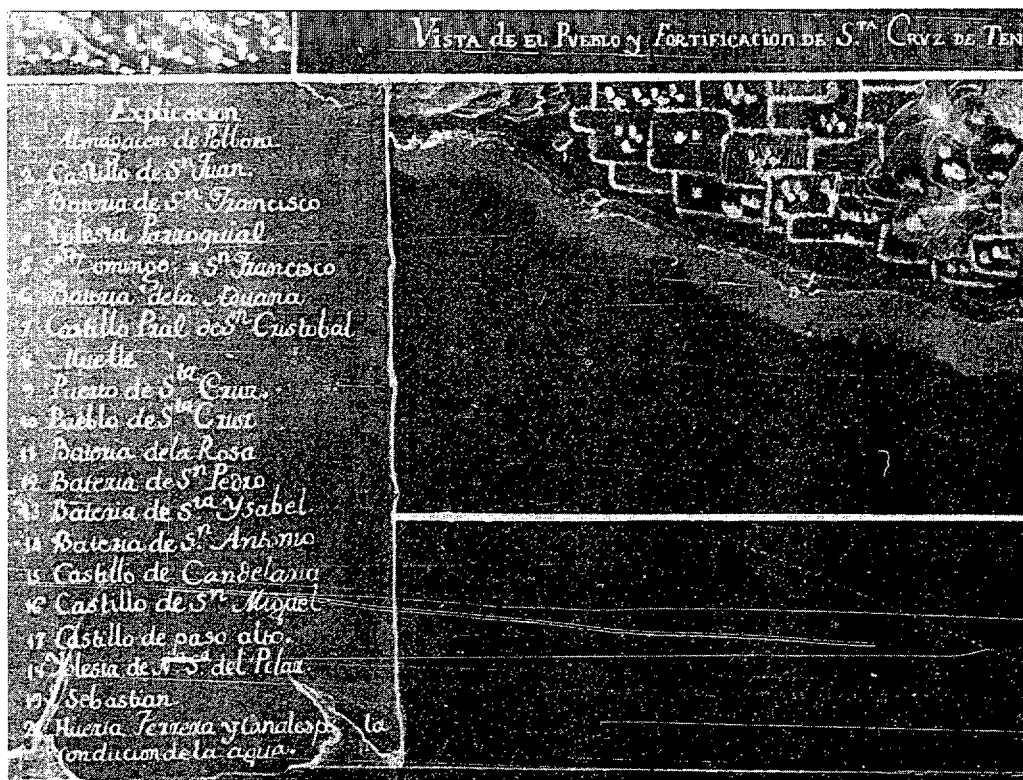 VISTA DE EL PUEBLO y FORTIFICACION DE S.TA CRVZ DE TEN
Explicacion
1 Almagacen de Polbora
2 Castillo de Sn Juan.
3 Bateria de Sn Francisco
4 Yglesia Parroquial
5 Sn Domingo. Sn Francisco
6 Bateria dela Aduana
7 Castillo Pral de Sn Cristobal
8 Muelle
9 Puerto de Sta Cruz.
10 Pueblo de Sta Cruz
11 Bateria dela Rosa
12 Bateria de Sn Pedro
13 Bateria de Sta Ysabel
14 Bateria de Sn. Antonio
15 Castillo de Candelaria
16 Castillo de Sn Miguel
17 Castillo de paso alto.
18 Yglesia de del Pilar.
19 Sebastian
20 Huerta y Canales la
Conducion de la agua.